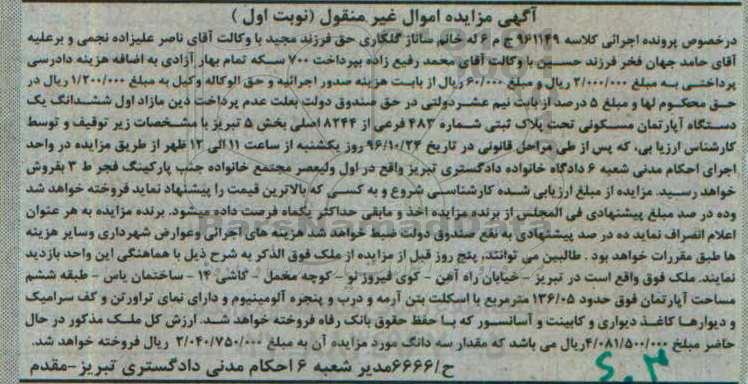 آگهی مزایده اموال غیر منقول (نوبت اول)
درخصوص پرونده اجرائی کلاسه ۹۶۱۱۴۹ ج م ۶ له خانم ساناز گلکاری حق فرزند مجید با وکالت آقای ناصر علیزاده نجمی و برعلیه
آقای حامد جهان فخر فرزند حسین با وکالت آقای محمد رفیع زاده بپرداخت ۷۰۰ سکه تمام بهار آزادی به اضافه هزینه دادرسی
پرداختی به مبلغ ۲/۰۰۰/۰۰۰ ریال و مبلغ ۶۰/۰۰۰ ریال از بابت هزینه صدور اجرائیه و حق الوکاله وکیل به مبلغ ۱/۲۰۰/۰۰۰ ریال در
حق محکوم لها و مبلغ ۵ درصد از بابت نیم عشر دولتی در حق صندوق دولت بعلت عدم پرداخت دین مازاد اول ششدانگ یک
دستگاه آپارتمان مسکونی تحت پلاک ثبتی شماره ۴۸۳ فرعی از ۸۲۴۴ اصلی بخش ۵ تبریز با مشخصات زیر توقیف و توسط
کارشناس ارزیا بی، که پس از طی مراحل قانونی در تاریخ ۹۶/۱۰/۲۴ روز یکشنبه از ساعت ۱۱ الی ۱۲ ظهر از طریق مزایده در واحد
اجرای احکام مدنی شعبه ۶ دادگاه خانواده دادگستری تبریز واقع در اول ولیعصر مجتمع خانواده جنب پارکینگ فجر ط ۳ بفروش
خواهد رسید. مزایده از مبلغ ارزیابی شده کارشناسی شروع و به کسی که بالاترین قیمت را پیشنهاد نماید فروخته خواهد شد
وده در صد مبلغ پیشنهادی فی المجلس از برنده مزایده اخذ و مابقی حداکثر یکماه فرصت داده میشود. برنده مزایده به هر عنوان
اعلام انصراف نماید ده در صد پیشنهادی به نفع صندوق دولت ضبط خواهد شد هزینه های اجرائی وعوارض شهرداری وسایر هزینه
ها طبق مقررات خواهد بود . طالبین می توانند، پنج روز قبل از مزایده از ملک فوق الذکر به شرح ذیل با هماهنگی این واحد بازدید
نمایند. ملک فوق واقع است در تبریز - خیابان راه آهن - کوی فیروز نو - کوچه مخمل - کاشی ۱۴ - ساختمان یاس - طبقه ششم
مساحت آپارتمان فوق حدود ۱۳۶/۰۵ مترمربع با اسکلت بتن آرمه و درب و پنجره آلومینیوم و دارای نمای تراورتن و کف سرامیک
و دیوارها کاغذ دیواری و کابینت و آسانسور که با حفظ حقوق بانک رفاه فروخته خواهد شد. ارزش کل ملک مذکور در حال
حاضر مبلغ ۴/۰۸۱/۵۰۰/۰۰۰ ریال می باشد که مقدار سه دانگ مورد مزایده آن به مبلغ ۲/۰۴۰/۷۵۰/۰۰۰ ریال فروخته خواهد شد.
ح/۶۶۶۶ مدیر شعبه ۶ احکام مدنی دادگستری تبریز-مقدم